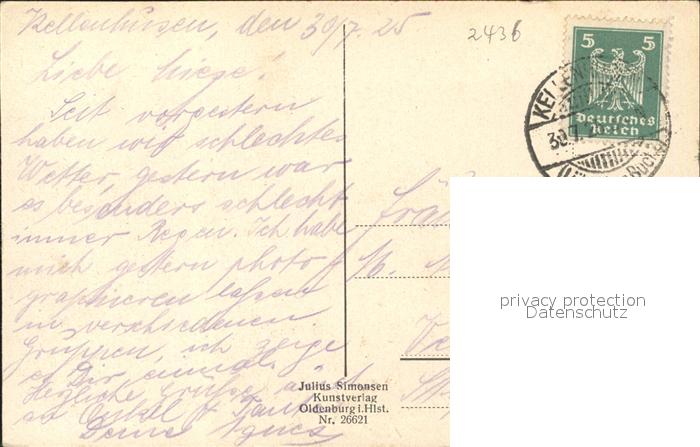 Kellenhusen, den 30/7. 25
2436
Liebe Miege!
Seit vorgestern
haben wir schlechtes
Wetter, gestern war
es besonders schlecht
immer Regen. Ich habe
mich gestern photo-
graphieren lassen
in verschiedenen
Gruppen, ich zeige
es Dir einmal.
Herzliche Grüsse auch
an Onkel & Tante
Deine Agnes
5 5
Deutsches
Reich
KELLEN
30.7.
Buch
Julius Simonsen
Kunstverlag
Oldenburg i. Hlst.
Nr. 26621
privacy protection
Datenschutz